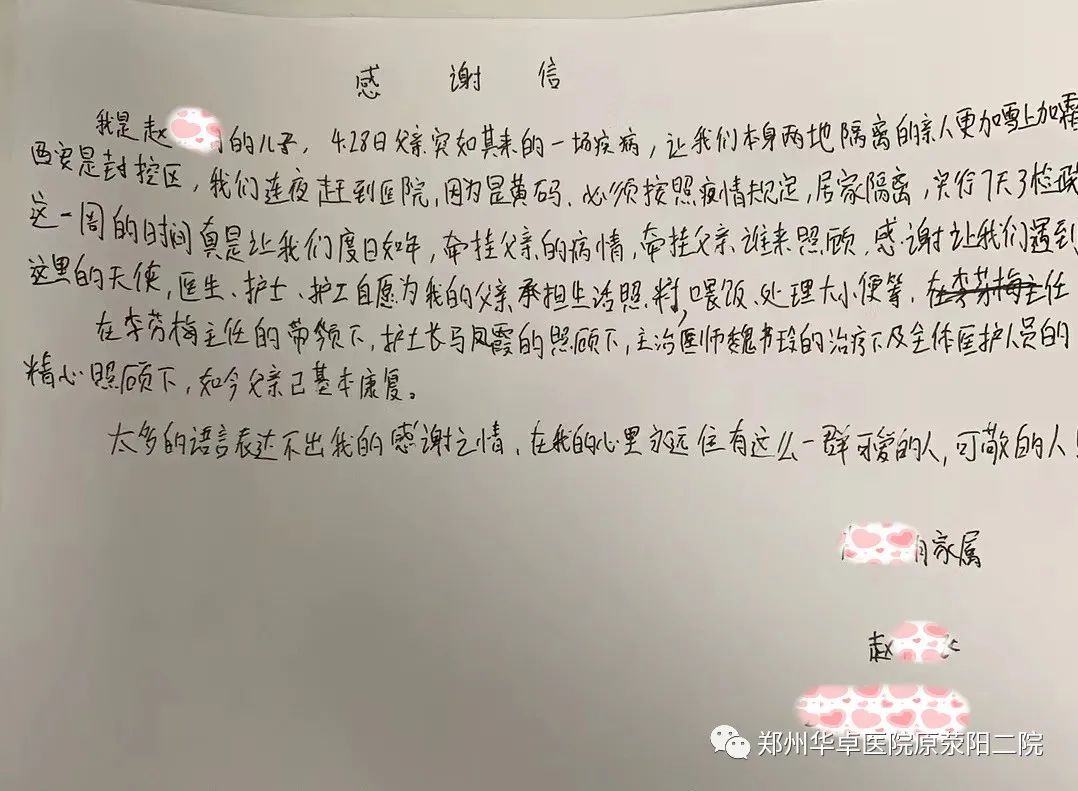 感 谢 信
我是赵 的儿子，4.28日父亲突如其来的一场疾病，让我们本身两地隔离的亲人更加雪上加霜
西安是封控区，我们连夜赶到医院，因为是黄码、必须按照疫情规定，居家隔离，实行7天3检政
这一周的时间真是让我们度日如年，牵挂父亲的病情，牵挂父亲谁来照顾，感谢让我们遇到
这里的天使，医生、护士、护工自愿为我的父亲承担生活照料，喂饭、处理大小便等，在李芬梅主任
在李芬梅主任的带领下，护士长马凤霞的照顾下，主治医师魏书玲的治疗下及全体医护人员的
精心照顾下，如今父亲已基本康复。
太多的语言表达不出我的感谢之情，在我的心里永远住有这么一群可爱的人，可敬的人！
家属
赵
郑州华卓医院原荥阳二院